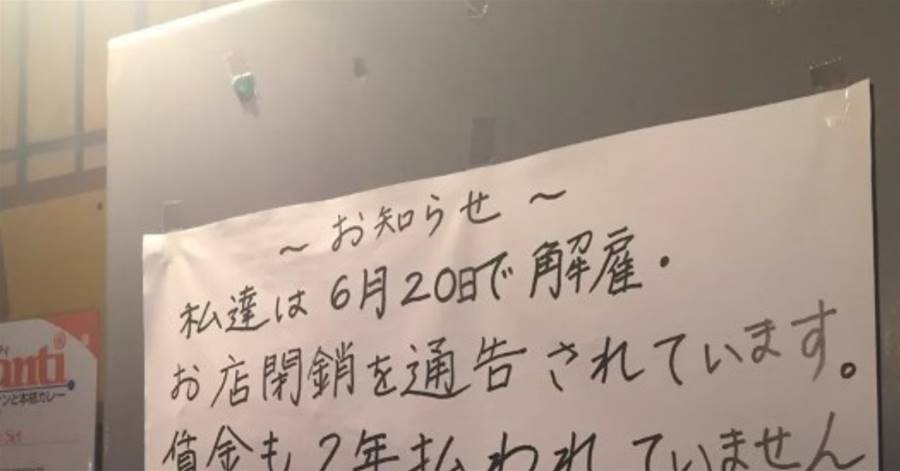 ～お知らせ～
私達は6月20日で解雇・
お店閉鎖を通告されています。
賃金も2年払われていません
anti®
ンと本格カレー
Set